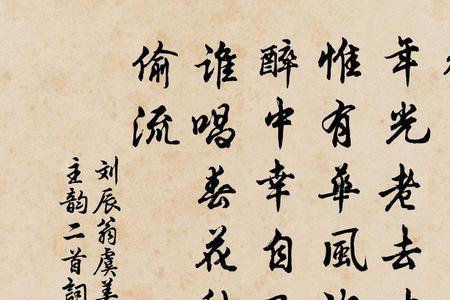 年光老去
惟有華風
醉中幸自
誰唱春花秋
偷流
刘辰翁虞美
主韵二首詞